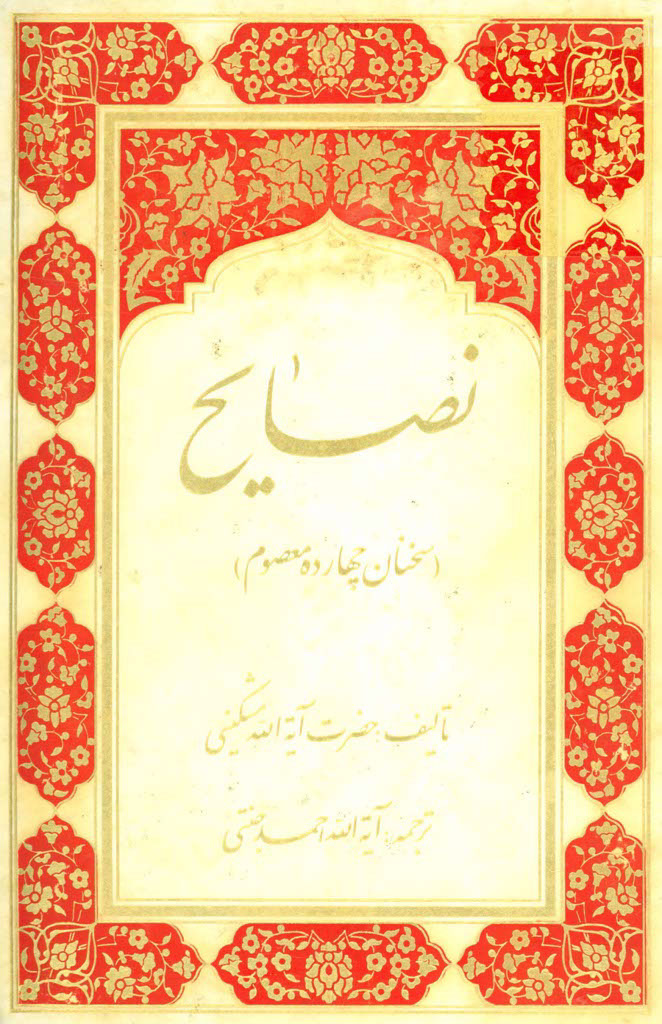 نصایح
(سخنان چهارده معصوم)
تألیف: حضرت آیة الله مشکینی
ترجمه: آیة الله احمد جنتی